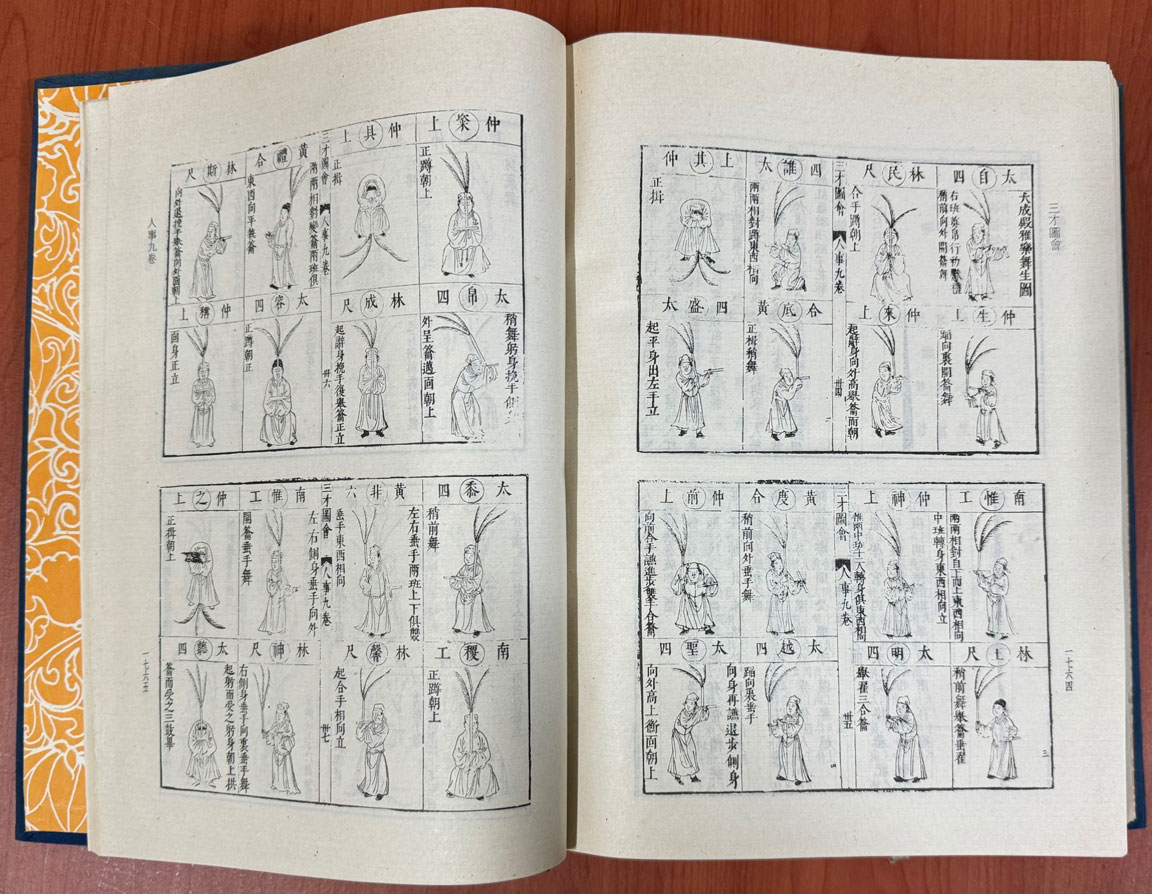 三才圖會
太自四
大成殿雅樂舞生圖
稍前向外開籥舞
林民尺
合手蹲朝上
三才圖會
人事九卷
卅四
四誰太
兩兩相對蹲東西相向
上其仲
正揖
仲生上
蹈向裏開籥舞
仲來上
起辭身向外高舉籥而朝
合底黃
正揖稍舞
四盛太
起平身出左手立
南惟工
兩兩相對自下而上東西相向
中班轉身東西相向立
仲神上
惟兩中班十二人轉身俱東西相向
三才圖會
人事九卷
卅五
黃度合
稍前向外垂手舞
仲前上
向前合手謙進步雙手合籥
林王尺
稍前舞舉籥垂翟
太明四
舉翟三合籥
太越四
蹈向裏垂手
太聖四
向身再謙退步側身
向外高上衡面朝上
一七六四
三
仲粢上
正蹲朝上
仲具上
正揖
三才圖會
人事九卷
卅六
黃禮合
兩兩相對變籥兩班俱
東西向平執籥
林斯尺
向外退挽手舉籥向外面朝上
太帛四
稍舞躬身挽手側
外呈籥邁面朝上
林成尺
起辭身挽手復舉籥正立
太容四
正蹲朝正
仲稱上
回身正立
太黍四
稍前舞
黃非六
左右垂手兩班上下俱雙
垂手東西相向
三才圖會
人事九卷
卅七
南惟工
左右側身垂手向外
開籥垂手舞
仲之上
正揖朝上
南稷工
正蹲朝上
林馨尺
起合手相向立
林神尺
右側身垂手向裏垂手舞
太聽四
起躬而受之躬身朝上拱
籥而受之三鼓畢
人事九卷
一七六五